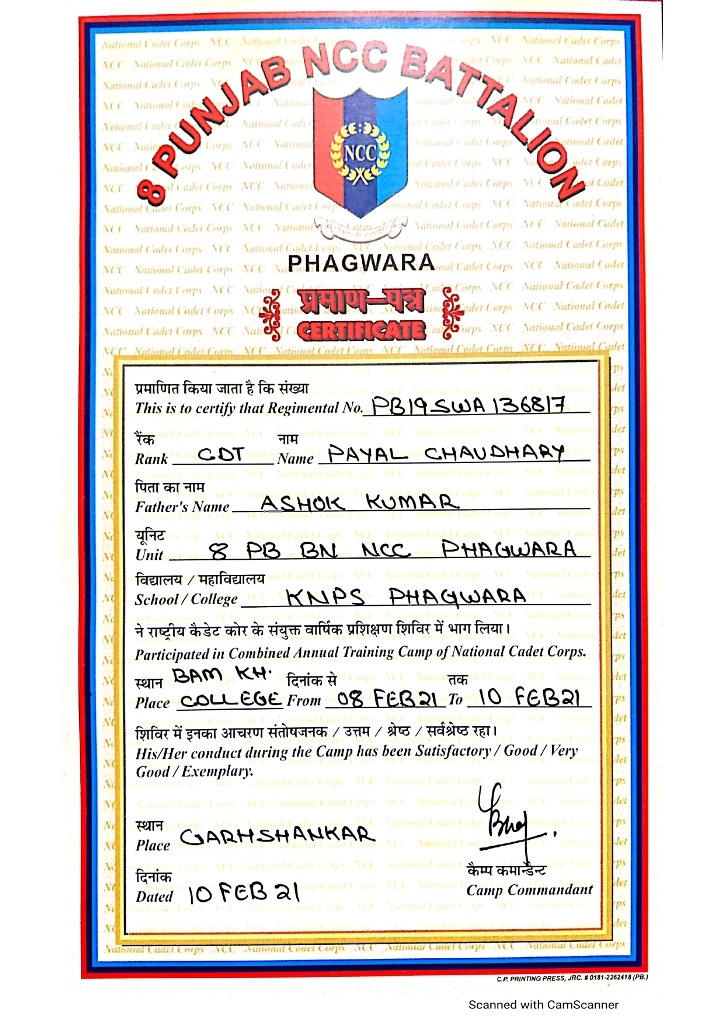 8 PUNJAB NCC BATTALION
NCC
PHAGWARA
प्रमाण-पत्र
CERTIFICATE
प्रमाणित किया जाता है कि संख्या
This is to certify that Regimental No. PB19SWA136817
रैंक नाम
Rank CDT Name PAYAL CHAUDHARY
पिता का नाम
Father's Name ASHOK KUMAR
यूनिट
Unit 8 PB BN NCC PHAGWARA
विद्यालय / महाविद्यालय
School / College KNPS PHAGWARA
ने राष्ट्रीय कैडेट कोर के संयुक्त वार्षिक प्रशिक्षण शिविर में भाग लिया।
Participated in Combined Annual Training Camp of National Cadet Corps.
स्थान BAM KH. दिनांक से तक
Place COLLEGE From 08 FEB 21 To 10 FEB 21
शिविर में इनका आचरण संतोषजनक / उत्तम / श्रेष्ठ / सर्वश्रेष्ठ रहा।
His/Her conduct during the Camp has been Satisfactory / Good / Very
Good / Exemplary.
स्थान
Place GARHSHANKAR
दिनांक कैम्प कमान्डैन्ट
Dated 10 FEB 21 Camp Commandant
C.P. PRINTING PRESS, JRC. # 0181-2262418 (PB.)
Scanned with CamScanner